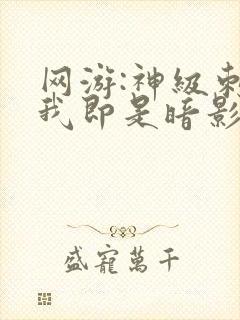 网游:神级刺
我即是暗影
盛寵萬千